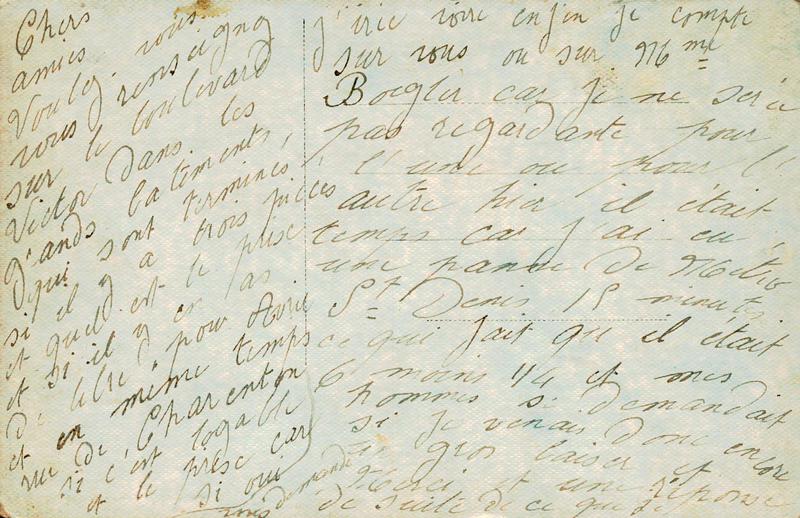 Chers
amies vous
Voulez vous
vous renseigné
sur le boulevard
Victor dans les
batements,
qui sont terminés
si il y a trois pièces
et quelle est le prise
et si il y en as
de libre pour Avril
et en même temps
rue de Charenton
si c'est logable
et le prise car
si oui
demande
j'irie voire enfin je compte
sur vous ou sur Mme
Boegler car je ne serée
pas regardante pour
l'une ou pour l'
autre hier il était
temps car j'ai eu
une panne de Métro
St Denis 15 minutes
ce qui fait qu il était
6 moins 1/4 et mes
hommes si demandait
si je venais donc encore
un gros baiser et
Merci et une réponse
de suite de ce que je